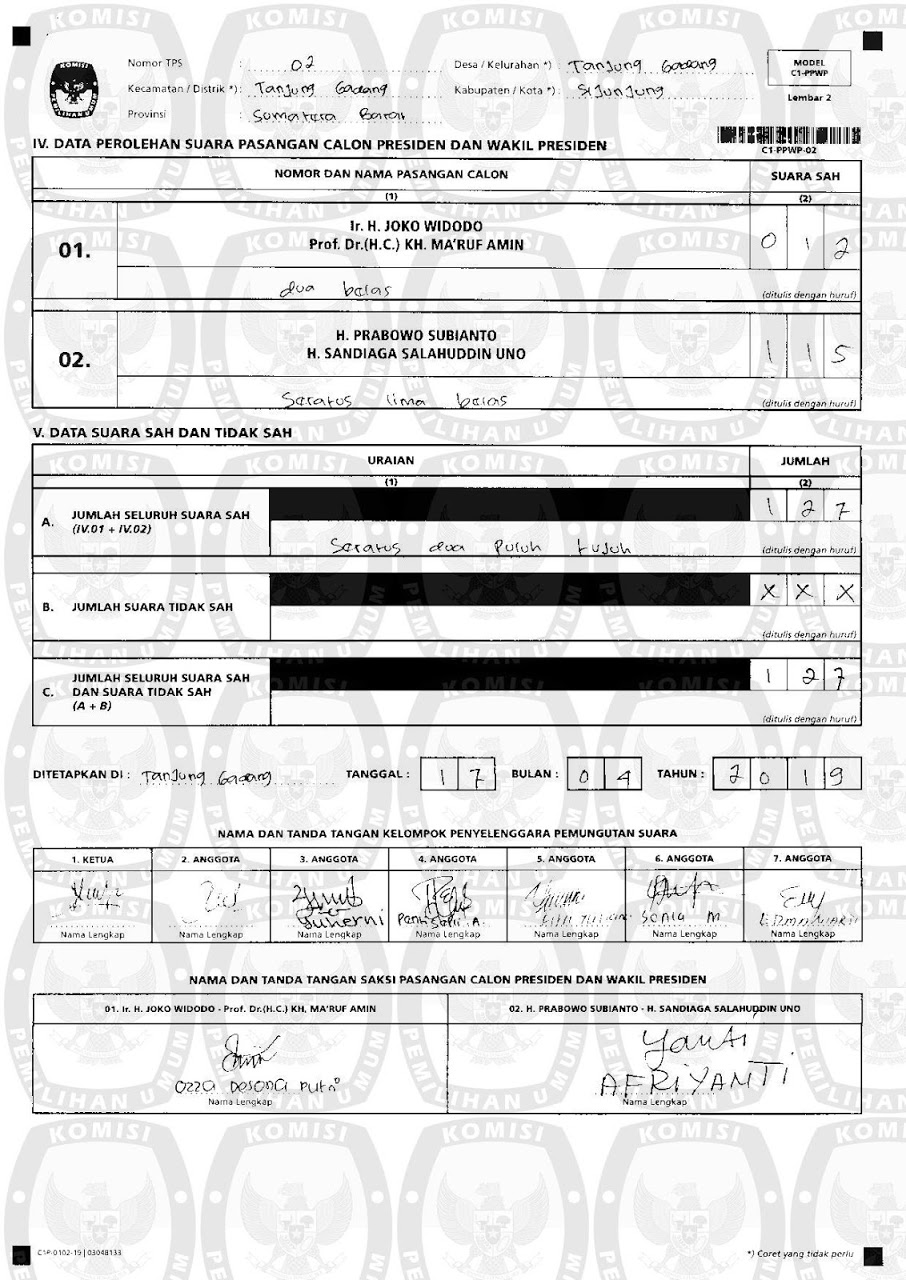 KOMISI
PEMILIHAN UMUM
Nomor TPS : 02
Desa / Kelurahan *) : Tanjung Gadang
Kecamatan / Distrik *) : Tanjung Gadang
Kabupaten / Kota *) : Sijunjung
Provinsi : Sumatera Barat
MODEL
C1-PPWP
Lembar 2
C1-PPWP-02
IV. DATA PEROLEHAN SUARA PASANGAN CALON PRESIDEN DAN WAKIL PRESIDEN
NOMOR DAN NAMA PASANGAN CALON SUARA SAH
(1) (2)
01. Ir. H. JOKO WIDODO
Prof. Dr.(H.C.) KH. MA'RUF AMIN 0 1 2
dua belas (ditulis dengan huruf)
02. H. PRABOWO SUBIANTO
H. SANDIAGA SALAHUDDIN UNO 1 1 5
Seratus lima belas (ditulis dengan huruf)
V. DATA SUARA SAH DAN TIDAK SAH
URAIAN JUMLAH
(1) (2)
A. JUMLAH SELURUH SUARA SAH
(IV.01 + IV.02) 1 2 7
Seratus dua puluh tujuh (ditulis dengan huruf)
B. JUMLAH SUARA TIDAK SAH X X X
(ditulis dengan huruf)
C. JUMLAH SELURUH SUARA SAH
DAN SUARA TIDAK SAH
(A + B) 1 2 7
(ditulis dengan huruf)
DITETAPKAN DI : Tanjung Gadang TANGGAL : 1 7 BULAN : 0 4 TAHUN : 2 0 1 9
NAMA DAN TANDA TANGAN KELOMPOK PENYELENGGARA PEMUNGUTAN SUARA
1. KETUA 2. ANGGOTA 3. ANGGOTA 4. ANGGOTA 5. ANGGOTA 6. ANGGOTA 7. ANGGOTA
Sonia M
Nama Lengkap Nama Lengkap Nama Lengkap Nama Lengkap Nama Lengkap Nama Lengkap Nama Lengkap
NAMA DAN TANDA TANGAN SAKSI PASANGAN CALON PRESIDEN DAN WAKIL PRESIDEN
01. Ir. H. JOKO WIDODO - Prof. Dr.(H.C.) KH. MA'RUF AMIN 02. H. PRABOWO SUBIANTO - H. SANDIAGA SALAHUDDIN UNO
Yanti
Putri AFRIYANTI
Nama Lengkap Nama Lengkap
C1P-0102-19 | 03048133 *) Coret yang tidak perlu